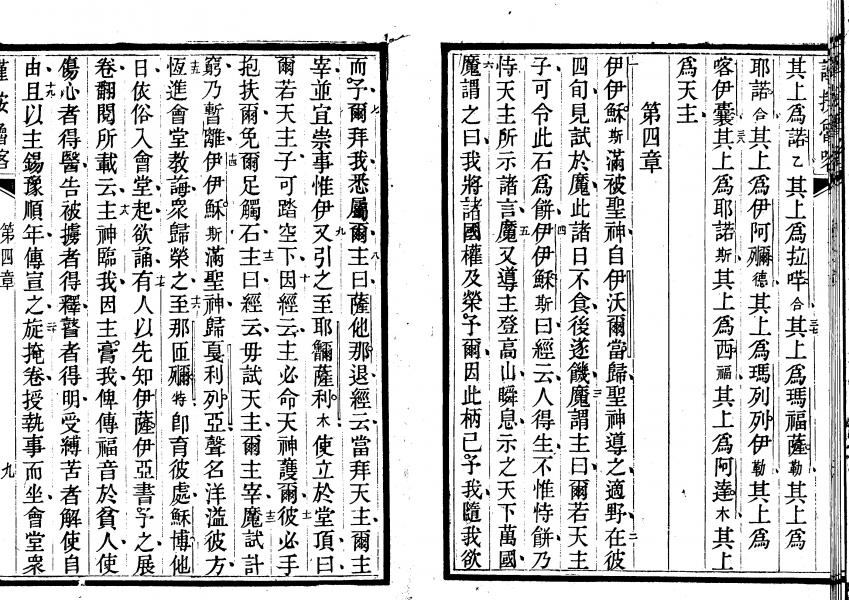 其上爲諾乙其上爲拉嘩合其上爲瑪福薩勒其上爲
耶諾合其上爲伊阿𤃩德其上爲瑪列列伊勒其上爲
喀伊囊其上爲耶諾斯其上爲西福其上爲阿達木其上
爲天主
第四章
一伊伊穌斯滿被聖神自伊沃爾當歸聖神導之適野在彼二
四旬見試於魔此諸日不食後遂饑魔謂主曰爾若天主三
子可令此石爲餅伊伊穌斯曰經云人得生不惟恃餅乃四
恃天主所示諸言魔又導主登高山瞬息示之天下萬國五
魔謂之曰我將諸國權及榮予爾因此柄已予我隨我欲六
而予爾拜我悉屬爾主曰薩他那退經云當拜天主爾主七八
宰並宜崇事惟伊又引之至耶𤃩薩利木使立於堂頂曰九
爾若天主子可踏空下因經云主必命天神護爾彼必手十十一
抱扶爾免爾足觸石主曰經云毋試天主爾主宰魔試計十二十三
窮乃暫離伊伊穌斯滿聖神歸戛利列亞聲名洋溢彼方十四
恆進會堂教誨衆歸榮之至那匝𤃩特卽育彼處穌博他十五十六
日依俗入會堂起欲誦有人以先知伊薩伊亞書予之展十七
卷翻閱所載云主神臨我因主膏我俾傳福音於貧人使十八
傷心者得醫告被擄者得釋瞽者得明受縛苦者解使自
由且以主錫豫順年傳宣之旋掩卷授執事而坐會堂衆十九二十
第四章
九